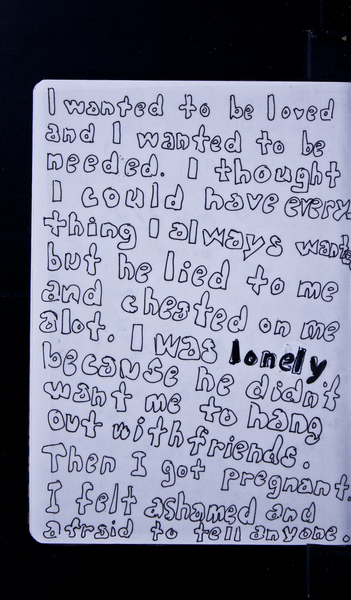 I wanted to be loved
and I wanted to be
needed. I thought
I could have every
thing I always wanted
but he lied to me
and cheated on me
alot. I was lonely
because he didn't
want me to hang
out with friends.
Then I got pregnant.
I felt ashamed and
afraid to tell anyone.